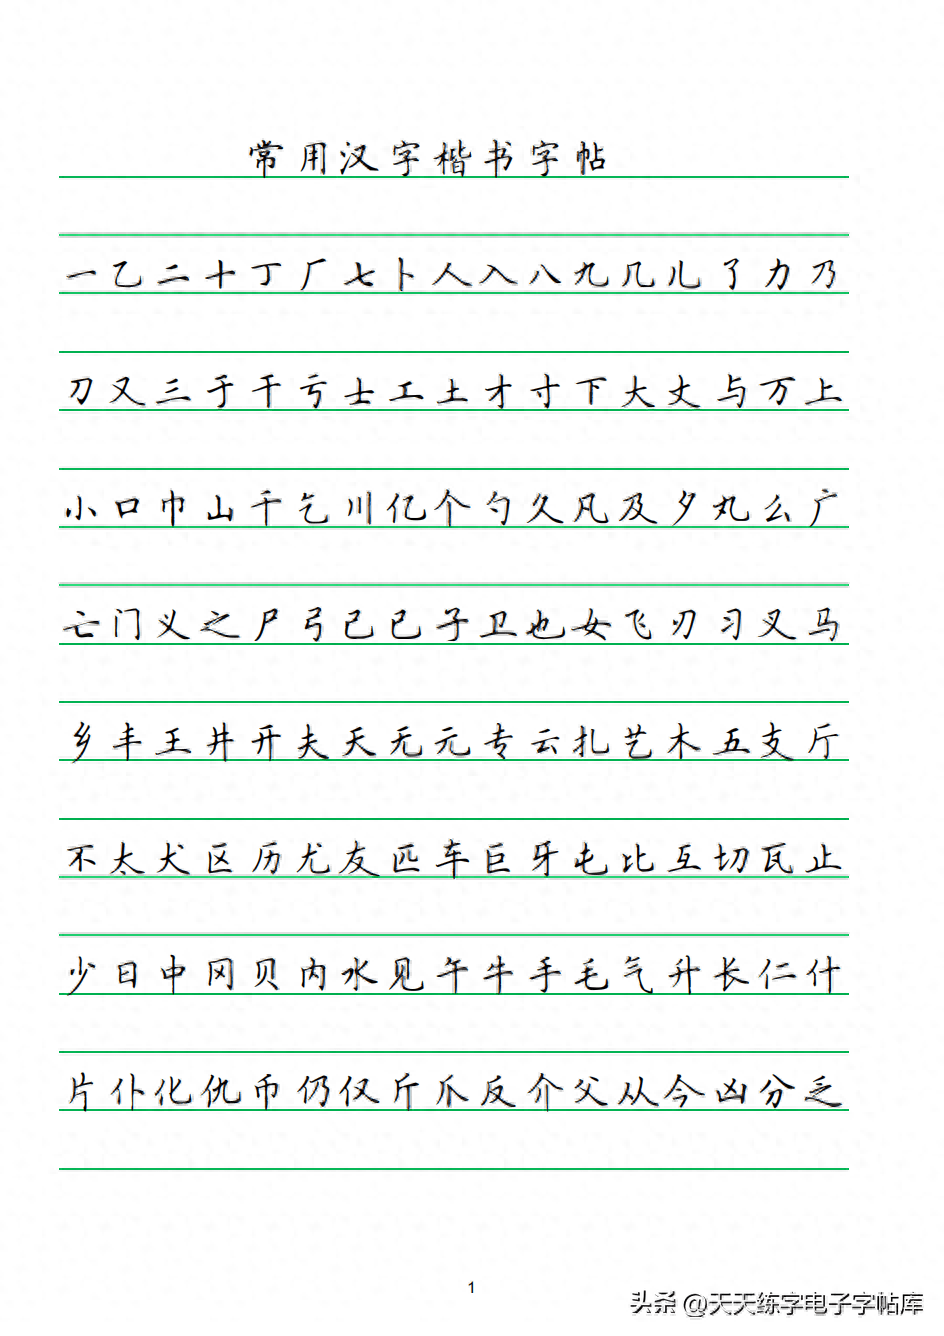 常用汉字楷书字帖
一乙二十丁厂七卜人入八九几儿了力乃
刀又三于干亏士工土才寸下大丈与万上
小口巾山千乞川亿个勺久凡及夕丸么广
亡门义之尸弓己已子卫也女飞刃习叉马
乡丰王井开夫天无元专云扎艺木五支厅
不太犬区历尤友匹车巨牙屯比互切瓦止
少日中冈贝内水见午牛手毛气升长仁什
片仆化仇币仍仅斤爪反介父从今凶分乏
1
头条 @天天练字电子字帖库